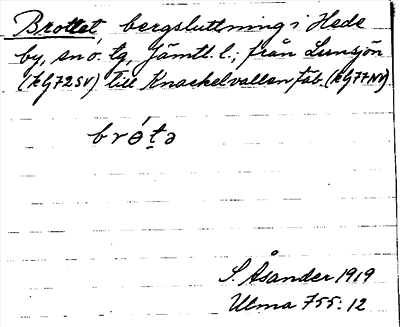 Brottet, bergsluttning i Hede
by, sn o. tg, Jämtl. l.; från Lunsjön
(kg 72 SV) till Knackelvallen fäb. (kg 77 NV)
brót̠ə
S. Åsander 1919
Ulma 755:12